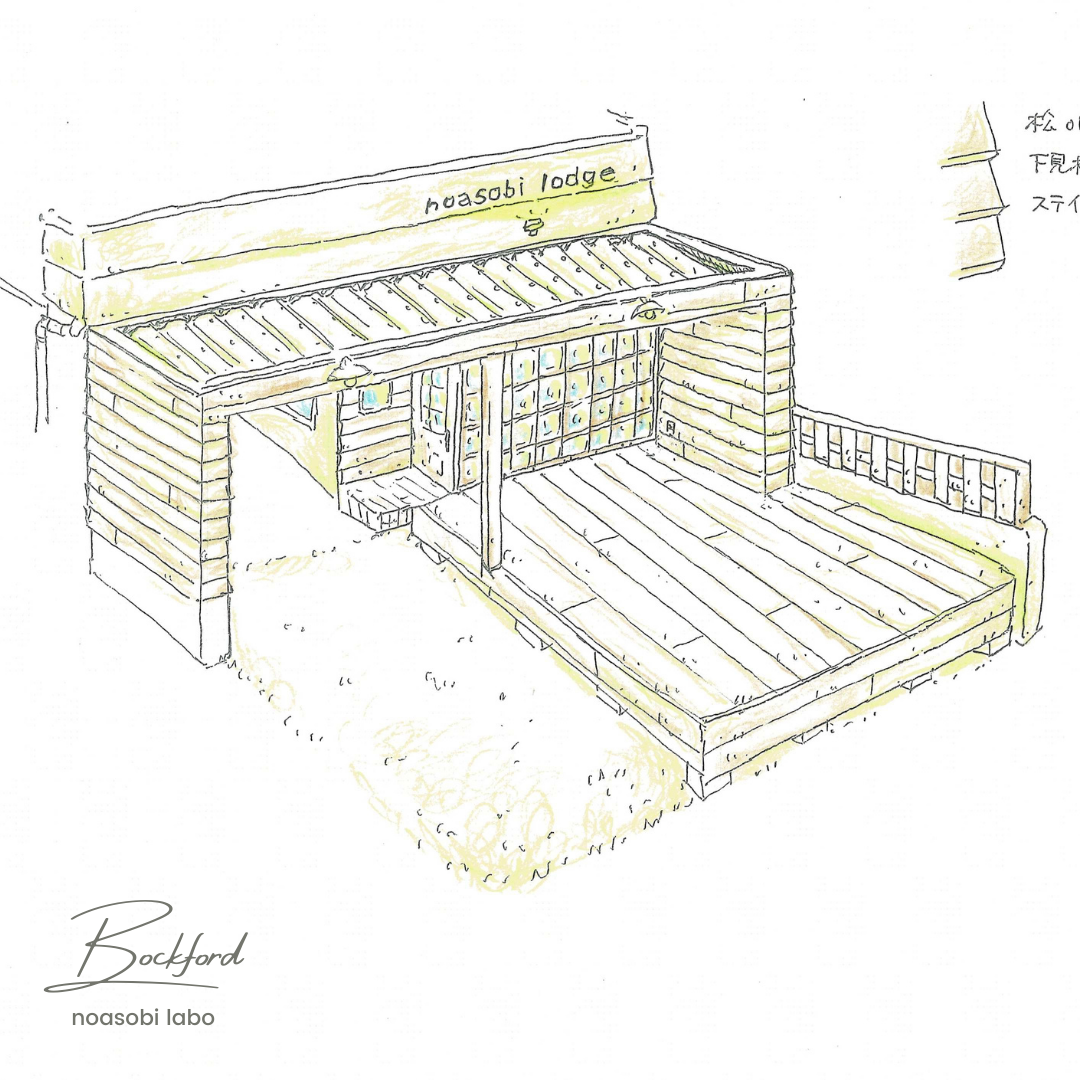 noasobi lodge
松 or
下見
ステイ
Bockford
noasobi labo